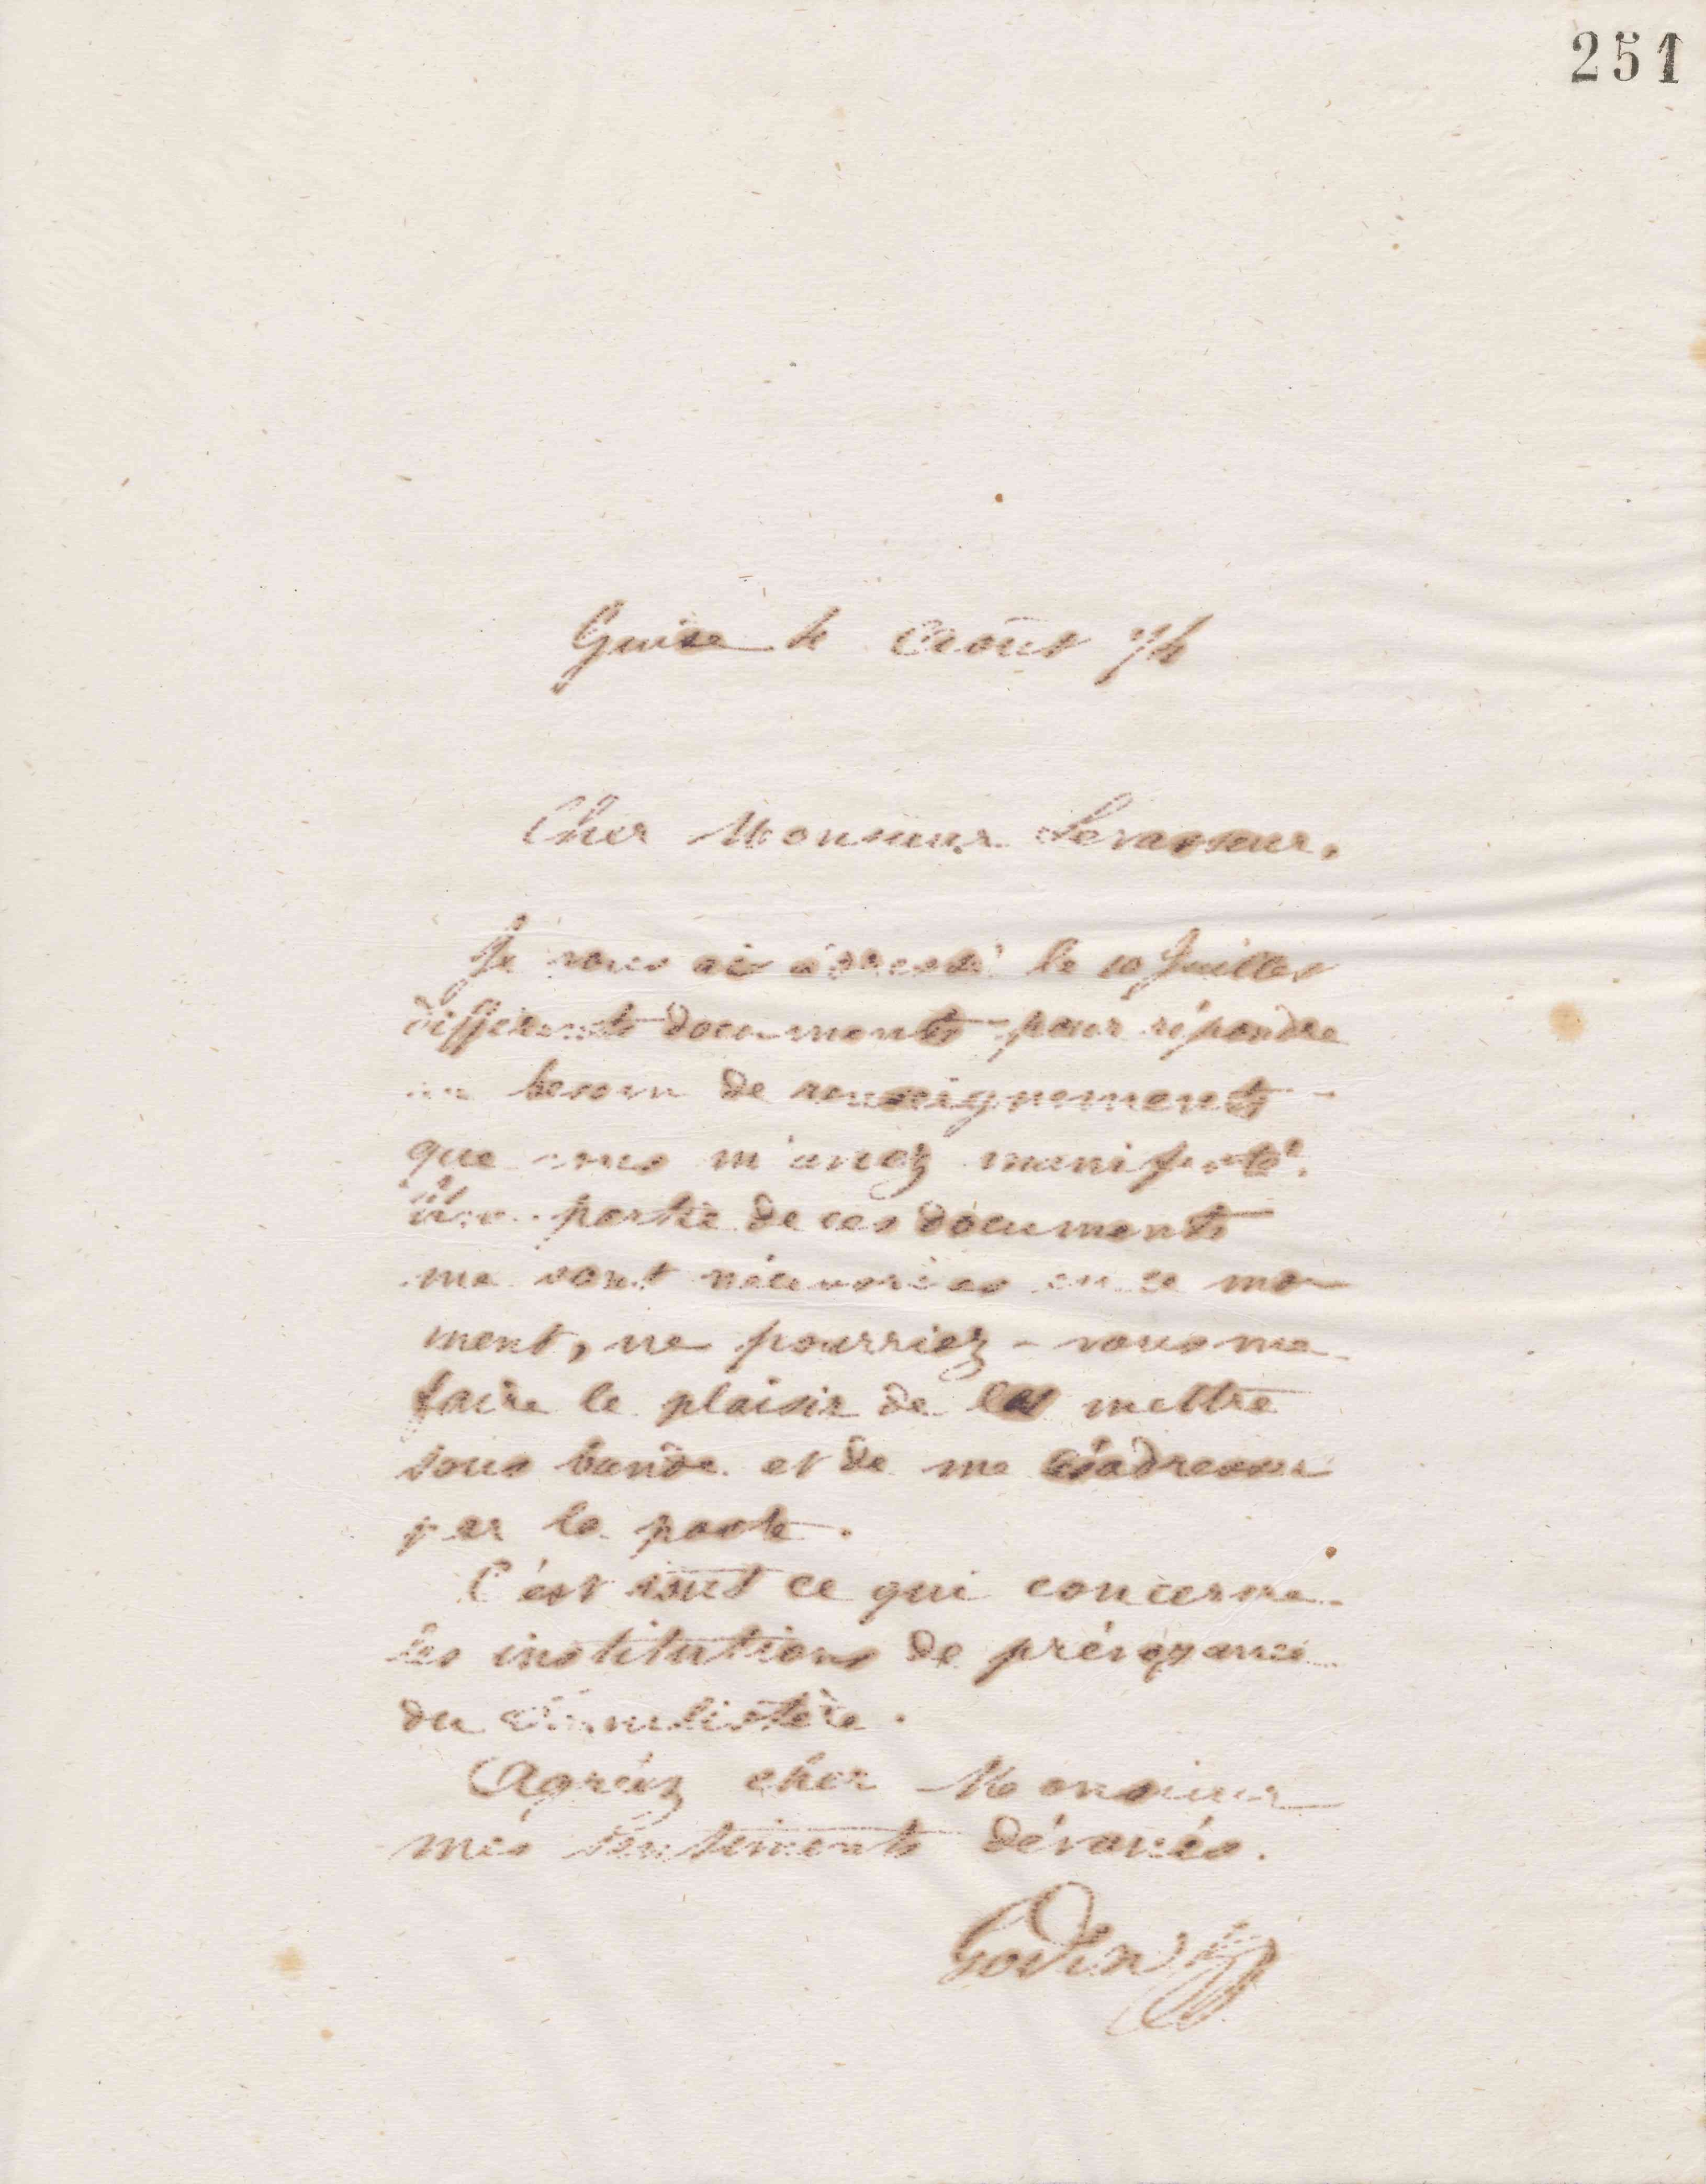 251
Guise le Août 74
Cher Monsieur Levasseur,
Je vous ai adressé le 10 Juillet
différents documents pour répondre
au besoin de renseignements
que vous m'avez manifesté.
Une partie de ces documents
me sont nécessaires en ce mo
ment, ne pourriez-vous me
faire le plaisir de les mettre
sous bande et de me les adresser
par la poste.
C'est tout ce qui concerne
les institutions de prévoyance
du Familistère.
Agréez cher Monsieur
mes sentiments dévoués.
Godin